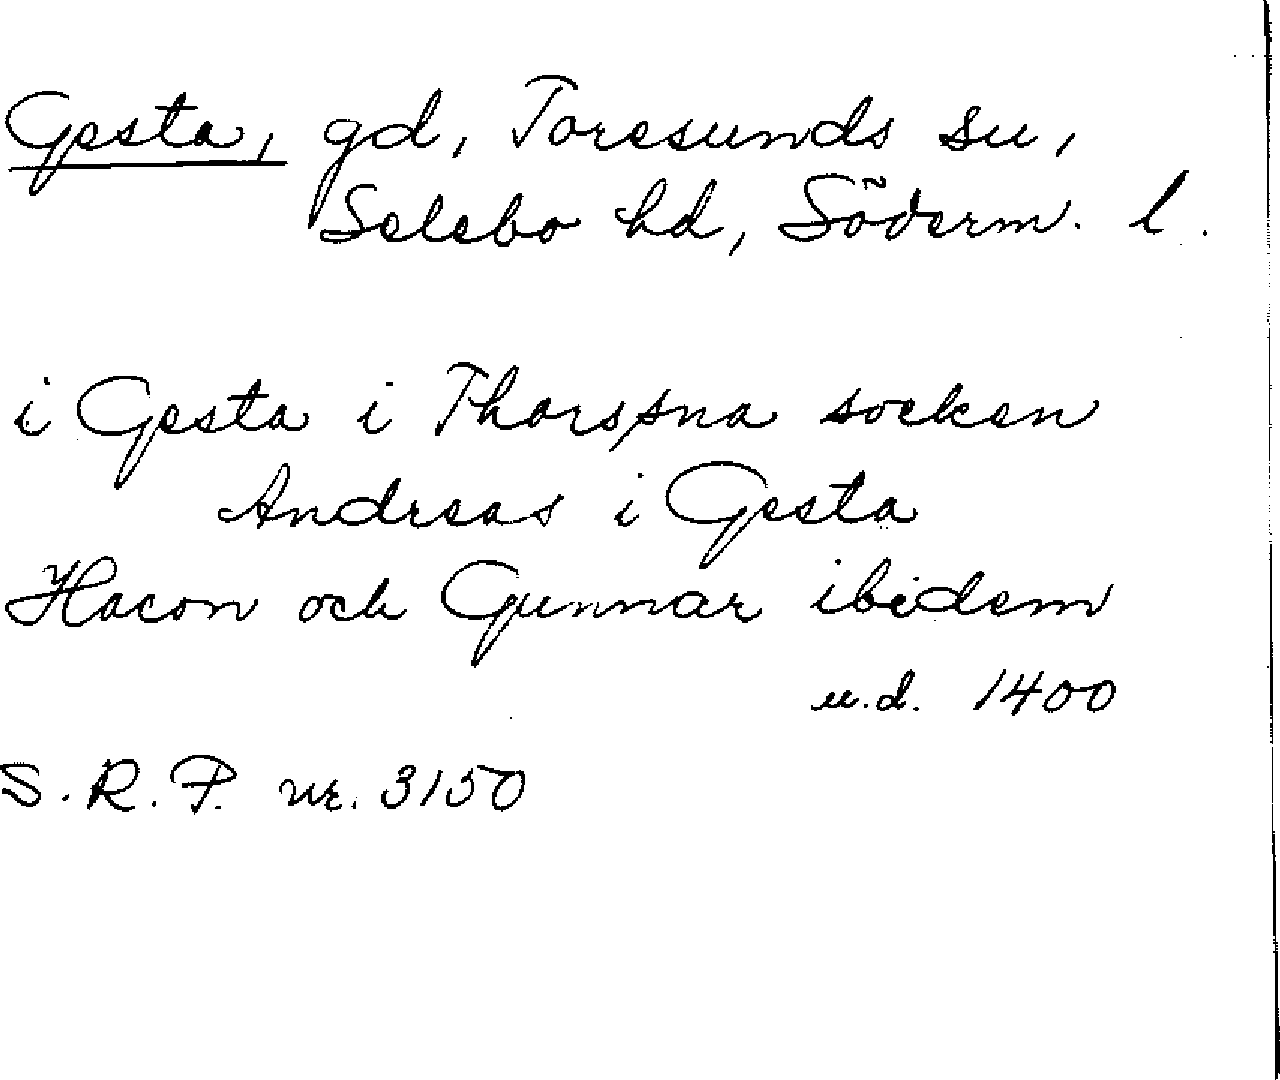 Gesta, gd, Toresunds sn,
Selebo hd, Söderm. l.
i Gesta i Thorsøna socken
Andreas i Gesta
Hacon och Gunnar ibidem
u.d. 1400
S. R. P. nr. 3150